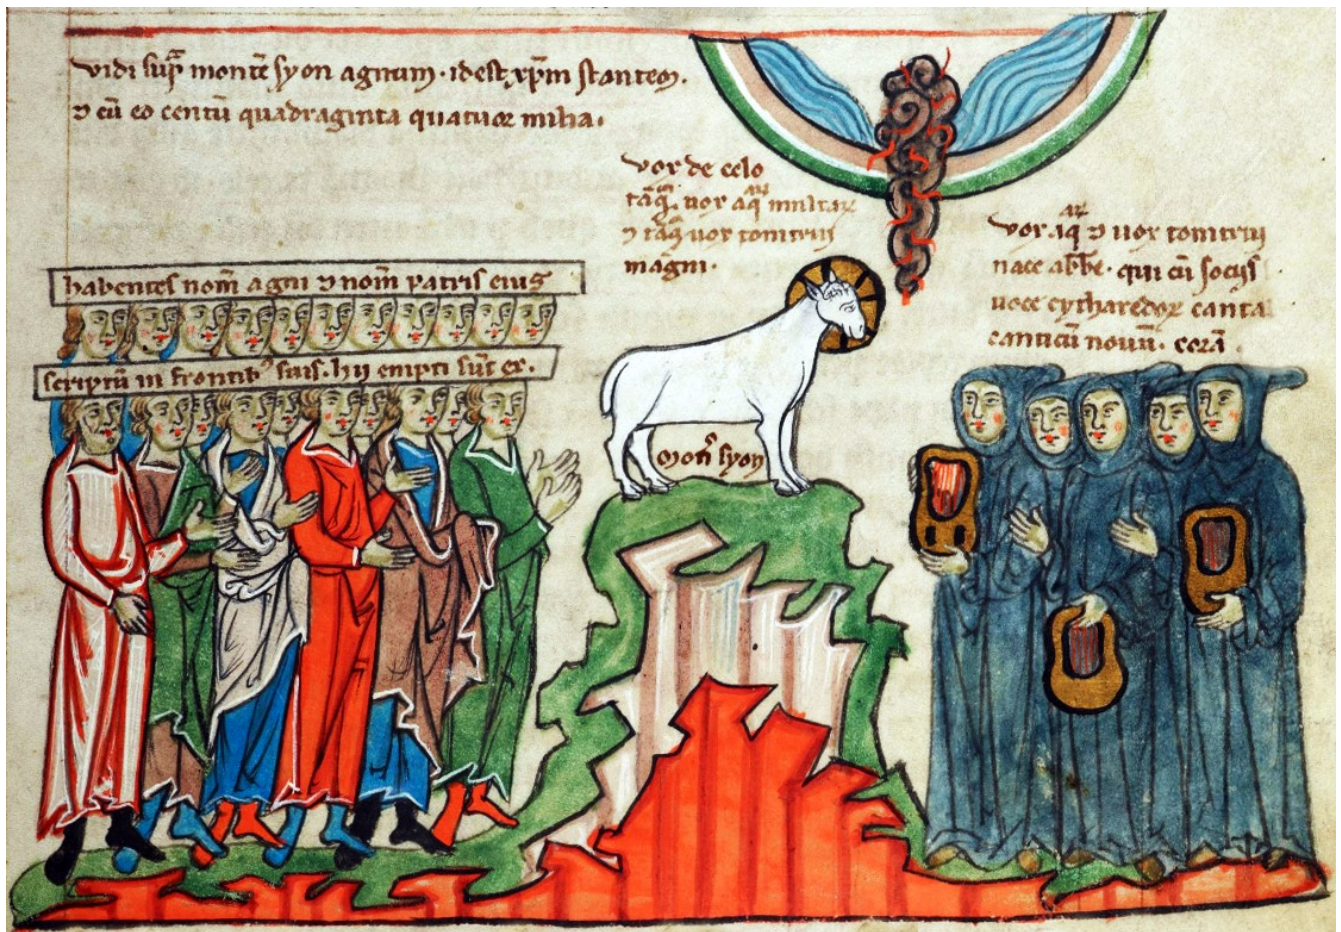 vidi sup̄ᵃ montē syon agnum · idest xp̄m stantem ·
⁊ cū eo centū quadraginta quatuor milia ·
vox de celo
tāq̄ᵃᵐ vox aq̄ᵃʳ multaꝝ
⁊ tāq̄ vox tonitrui
magni ·
vox aq̄ᵃʳ ⁊ vox tonitrui
abb̄e · qui cū socijs
uoce cytharedoꝝ canta
canticū nouū · corā ·
habentes nom̄ agni ⁊ nom̄ patris eius
scriptū in frontibꝰ suis · hij empti sūt ex ·
mons syon